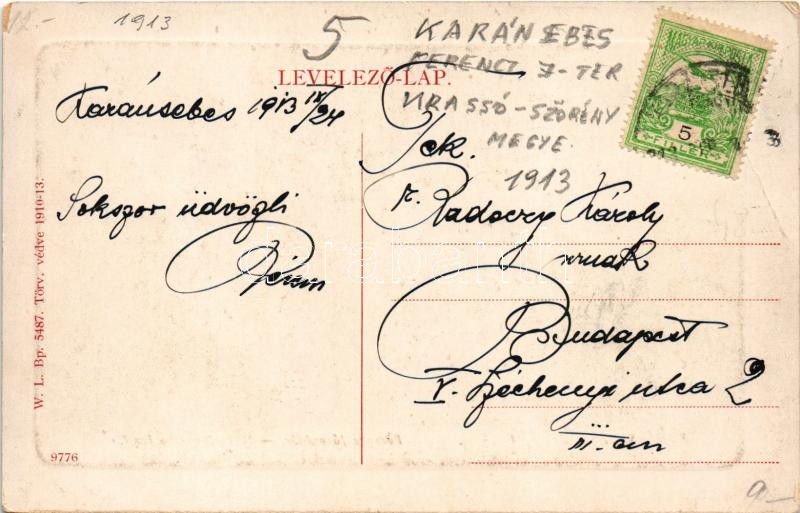 12.-
1913
5
KARÁNSEBES
FERENCZ J-TÉR
KRASSÓ-SZÖRÉNY
MEGYE
1913
LEVELEZŐ-LAP.
Karánsebes 1913 IX/24
Sokszor üdvözli
Tek.
Radoczy Károly
úrnak
Budapest
V. Széchenyi utca 2
III. em
MAGYAR KIR. POSTA
5
FILLÉR
W. L. Bp. 5487. Törv. védve 1910-13.
9776
9.-
darabanth